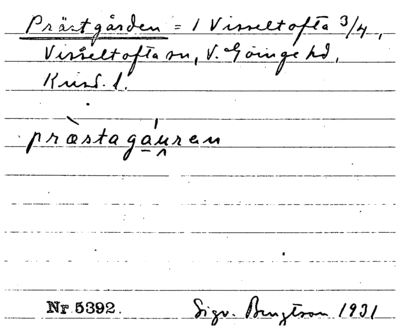 Prästgården = 1 Visseltofta 3/4,
Visseltofta sn, V. Göinge hd,
Krist. l.
præ̀stagáu̯ren
Nr 5392. Sigv. Bengtson 1931